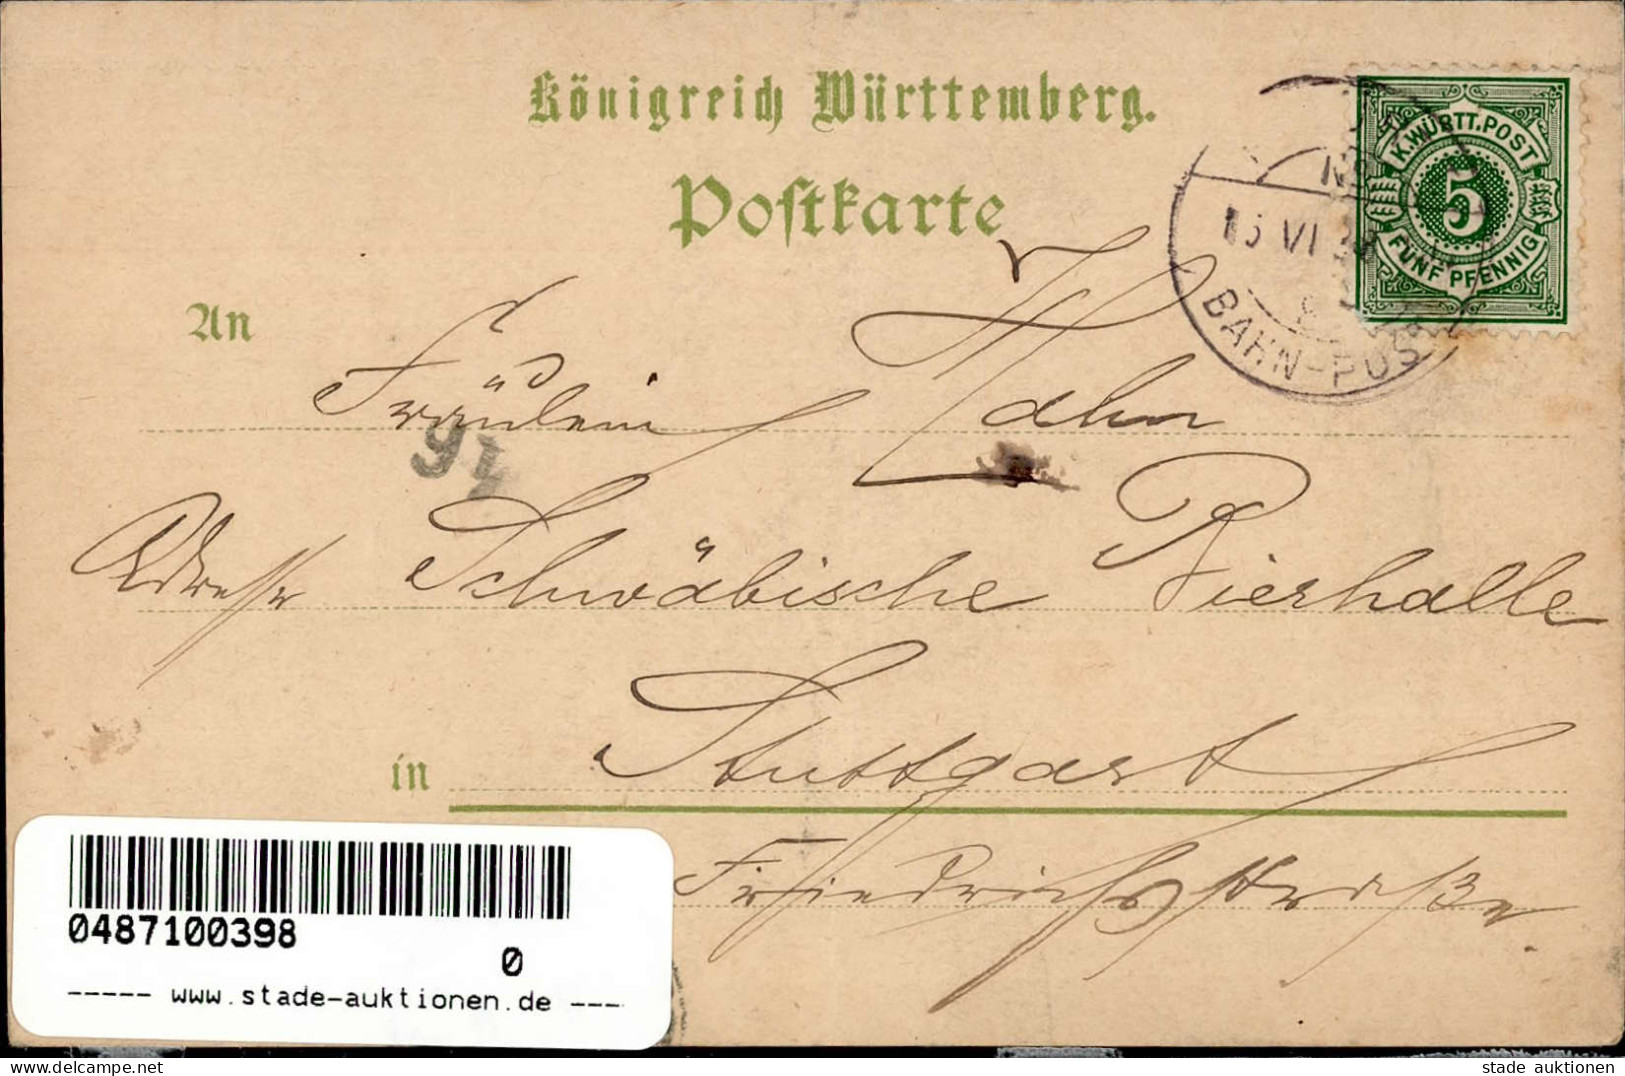 Königreich Württemberg.
Postkarte
K. WÜRTT. POST
5
FÜNF PFENNIG
15 VI
BAHN-POS
An
Fräulein Hahn
91
Adresse Schwäbische Bierhalle
in Stuttgart
Friedrichsstraße.
0487100398
0
----- www.stade-auktionen.de ----
stade auktionen